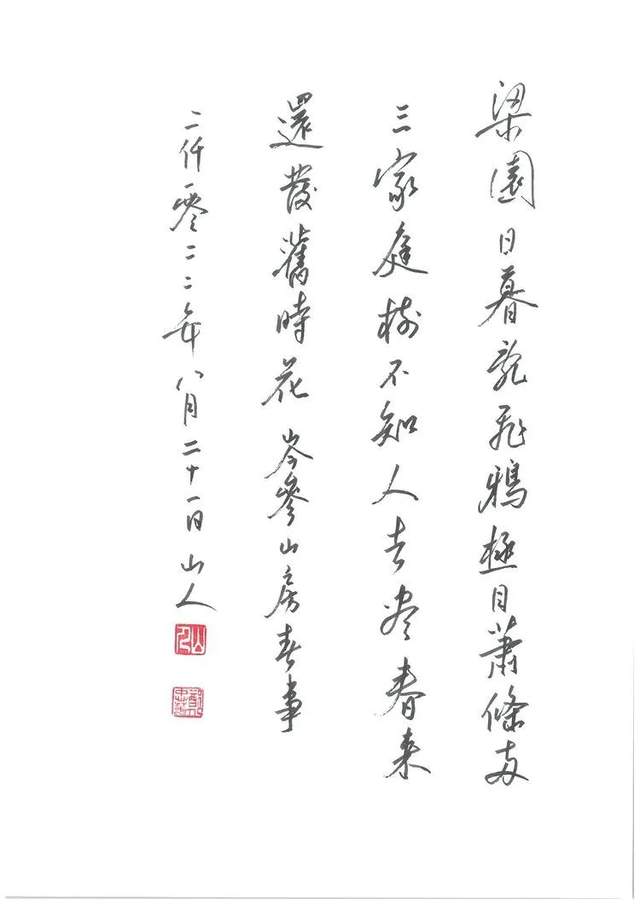 梁園日暮亂飛鴉極目蕭條兩
三家庭樹不知人去盡春来
還發舊時花 岑參山房春事
二仟零二二年八月二十一日 山人
山人